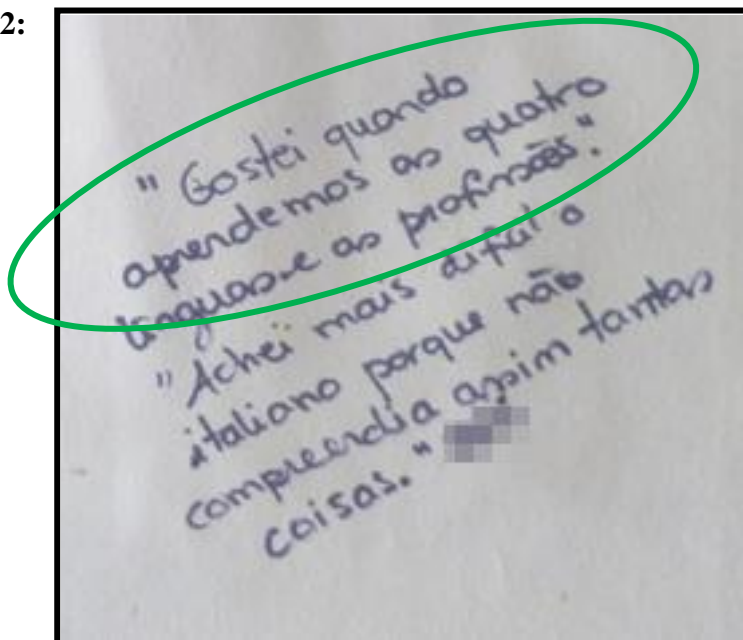 2:
" Gostei quando
aprendemos as quatro
línguas e as profissões".
"Achei mais difícil o
italiano porque não
compreendia assim tantas
coisas."